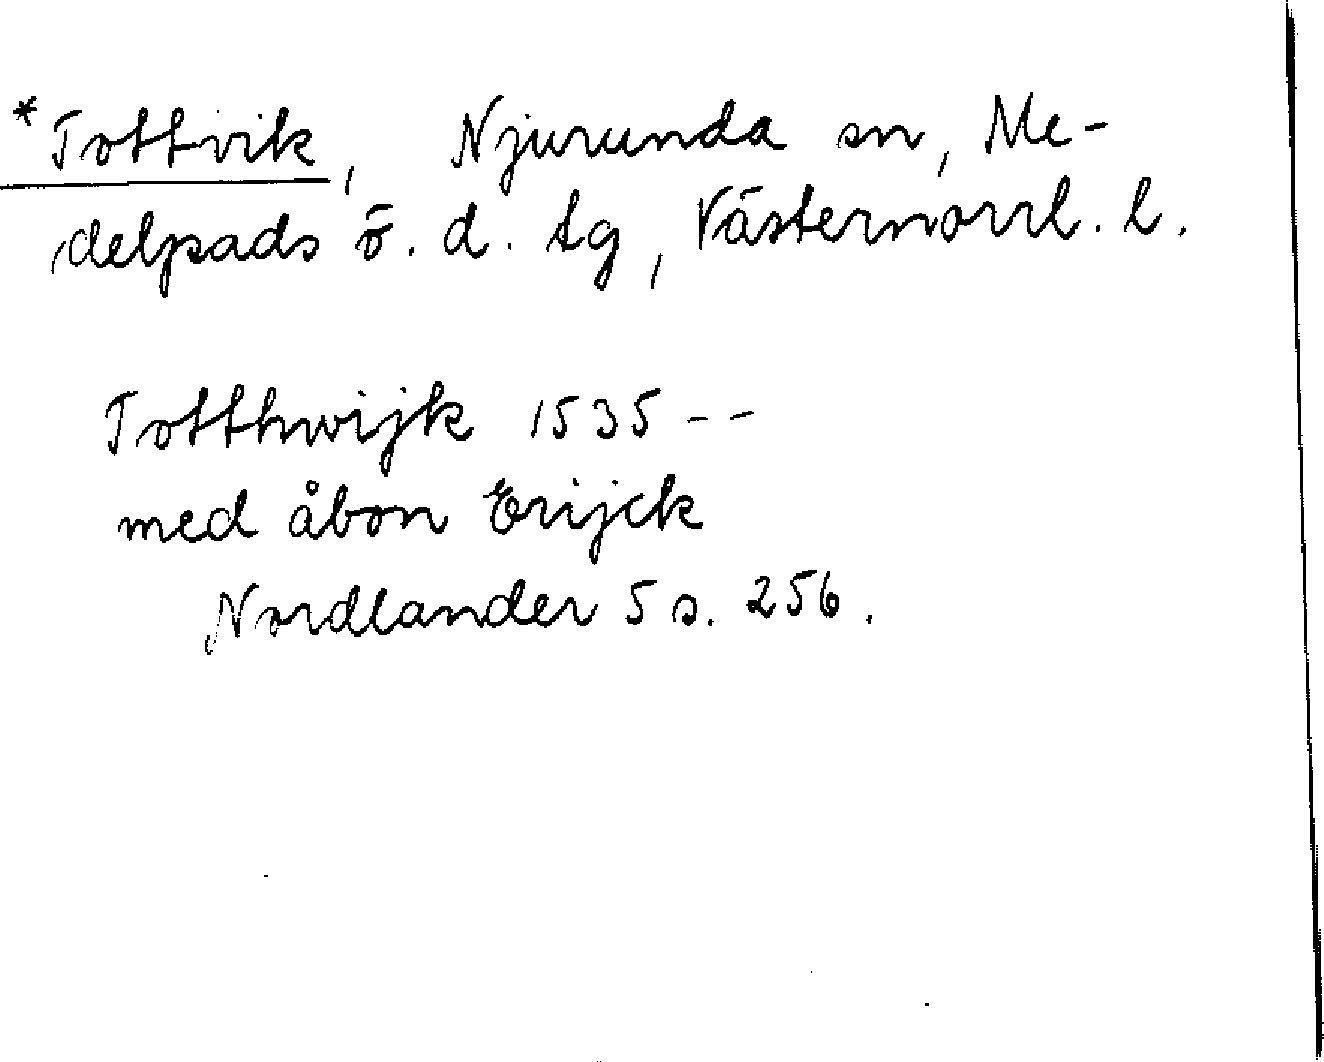 *Tottvik, Njurunda sn, Me-
delpads ö. d. tg, Västernorrl. l.
Totthwijk 1535 --
med åbon Erijck
Nordlander 5 s. 256.